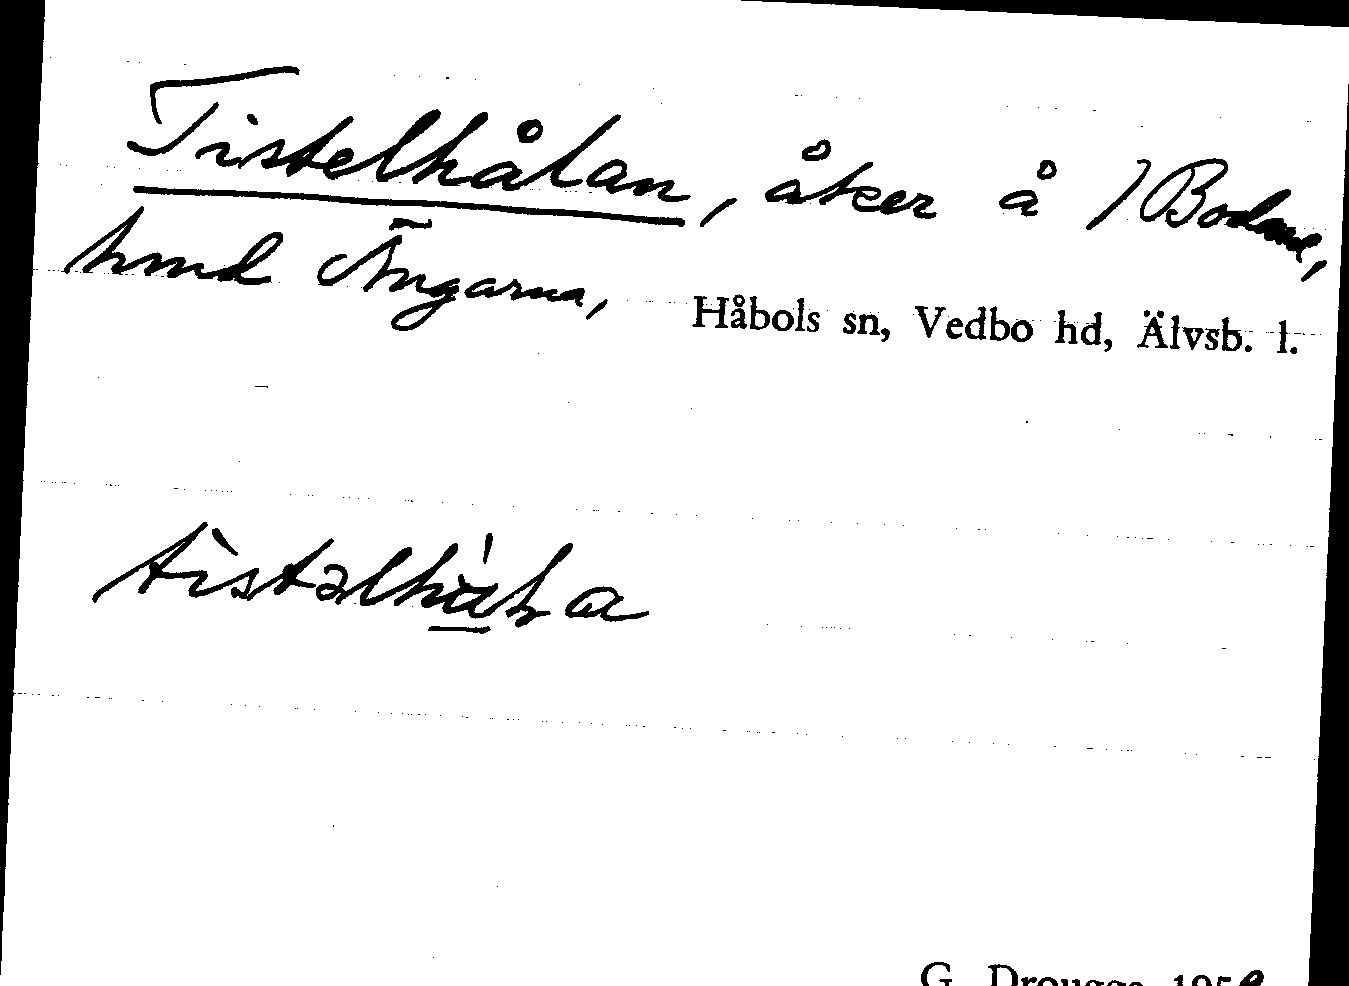 Tistelhålan, åker å Bodane,
hmd Ängarna, Håbols sn, Vedbo hd, Älvsb. l.
G. Drougge